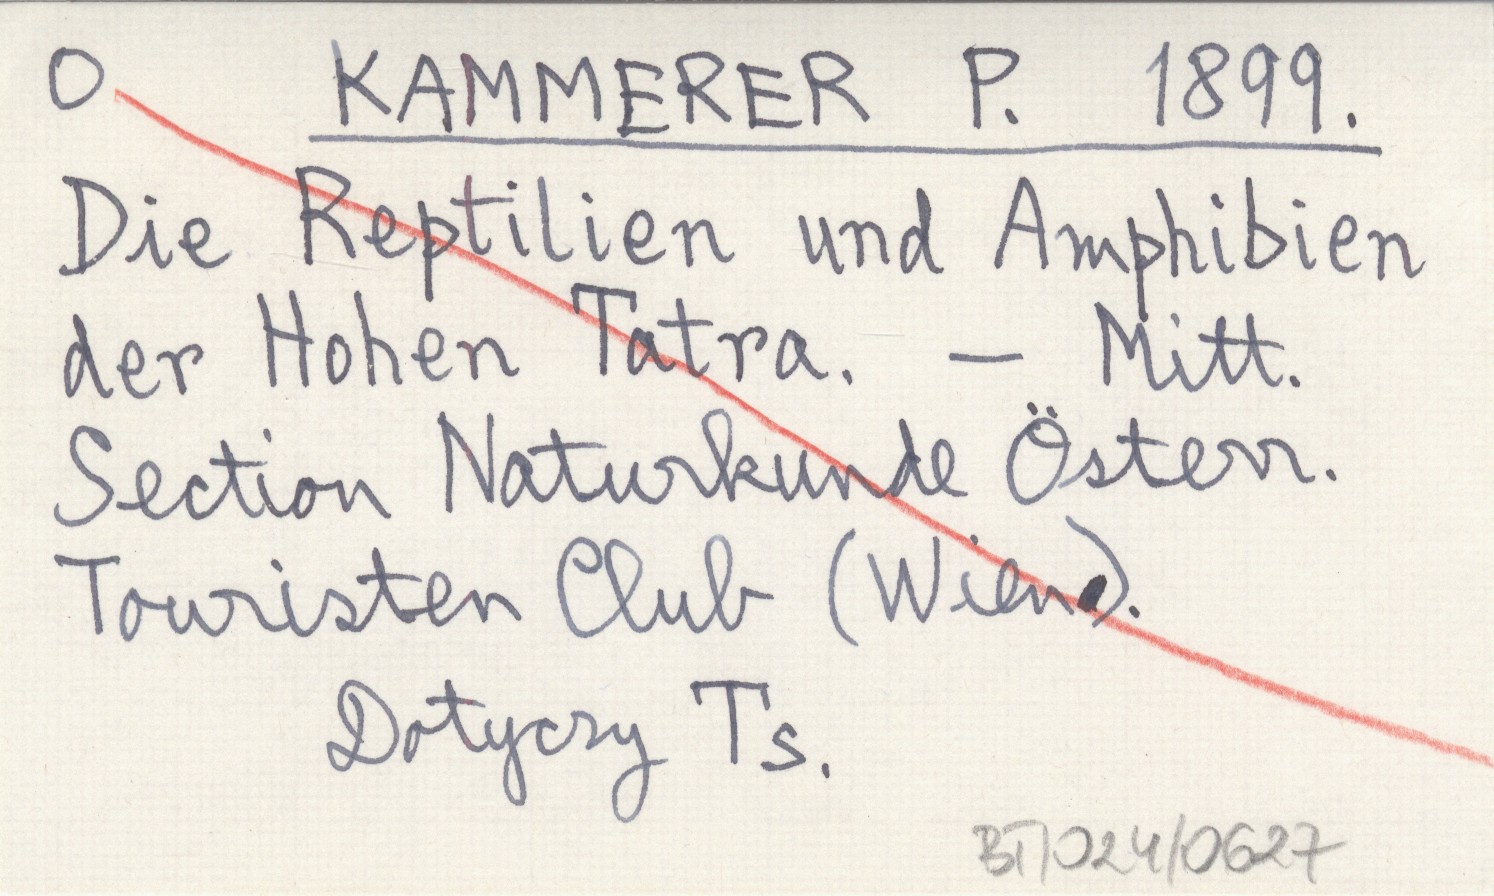 O KAMMERER P. 1899.
Die Reptilien und Amphibien
der Hohen Tatra. — Mitt.
Section Naturkunde Österr.
Touristen Club (Wien).
Dotyczy Ts.
BT/024/0627